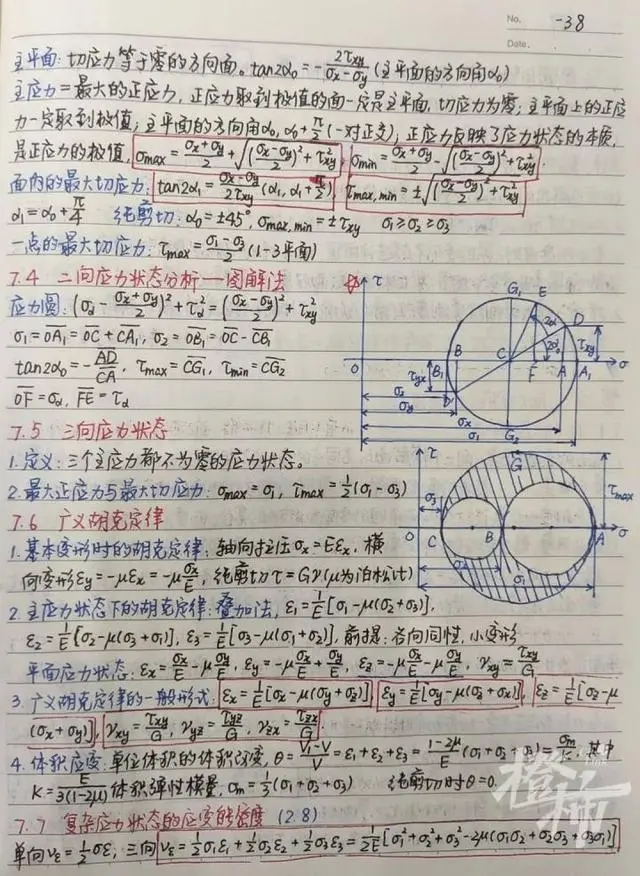 No. -38
Date.
主平面:切应力等于零的方向面。tan2α₀=-2τxy/(σx-σy)(主平面的方向角α₀)
主应力=最大的正应力,正应力取到极值的面一定是主平面,切应力为零;主平面上的正应
力一定取到极值;主平面的方向角α₀,α₀+π/2(一对正交);正应力反映了应力状态的本质,
是正应力的极值,σmax=(σx+σy)/2+√(((σx-σy)/2)²+τ²xy),σmin=(σx+σy)/2-√(((σx-σy)/2)²+τ²xy).
面内的最大切应力:tan2α₁=(σx-σy)/2τxy(α₁,α₁+π/2),τmax,min=±√(((σx-σy)/2)²+τ²xy)
α₁=α₀+π/4 纯剪切:α₀=±45°,σmax,min=±τxy σ₁≥σ₂≥σ₃
一点的最大切应力:τmax=(σ₁-σ₃)/2(1-3平面)
7.4 二向应力状态分析—图解法
应力圆:(σα-(σx+σy)/2)²+τ²α=((σx-σy)/2)²+τ²xy
σ₁=OA₁=OC+CA₁,σ₂=OB₁=OC-CB₁
tan2α₀=-AD/CA,τmax=CG₁,τmin=CG₂
OF=σα,FE=τα
τ G₁ E D 2α 2α₀ τxy
O B₁ B C F A A₁ σ
τyx D' G₂
σ₂ σy σx σ₁
7.5 三向应力状态
1.定义:三个主应力都不为零的应力状态。
2.最大正应力与最大切应力:σmax=σ₁,τmax=½(σ₁-σ₃)
τ G τmax
σ₃ O C B A σ
σ₂ σ₁
7.6 广义胡克定律
1.基本变形时的胡克定律:轴向拉压σx=Eεx,横
向变形εy=-μεx=-μσx/E,纯剪切τ=Gγ(μ为泊松比)
2.主应力状态下的胡克定律:叠加法,ε₁=1/E[σ₁-μ(σ₂+σ₃)],
ε₂=1/E[σ₂-μ(σ₃+σ₁)],ε₃=1/E[σ₃-μ(σ₁+σ₂)],前提:各向同性,小变形
平面应力状态:εx=σx/E-μσy/E,εy=-μσx/E+σy/E,εz=-μσx/E-μσy/E,γxy=τxy/G
3.广义胡克定律的一般形式:εx=1/E[σx-μ(σy+σz)],εy=1/E[σy-μ(σz+σx)],εz=1/E[σz-μ
(σx+σy)],γxy=τxy/G,γyz=τyz/G,γzx=τzx/G.
4.体积应变:单位体积的体积改变,θ=(V₁-V)/V=ε₁+ε₂+ε₃=(1-2μ)/E(σ₁+σ₂+σ₃)=σm/K,其中
K=E/3(1-2μ)体积弹性模量,σm=⅓(σ₁+σ₂+σ₃) 纯剪切时θ=0.
7.7 复杂应力状态的应变能密度 (2.8)
单向vε=½σε,三向vε=½σ₁ε₁+½σ₂ε₂+½σ₃ε₃=1/2E[σ₁²+σ₂²+σ₃²-2μ(σ₁σ₂+σ₂σ₃+σ₃σ₁)]
橙柿